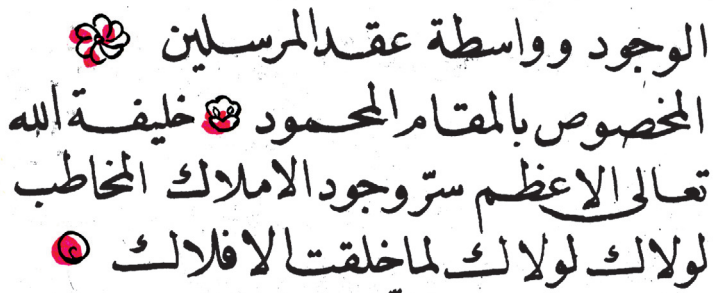 الوجود وواسطة عقد المرسلين
المخصوص بالمقام المحمود خليفة الله
تعالى الاعظم سرّ وجود الاملاك المخاطب
لولاك لولاك لما خلقت الافلاك